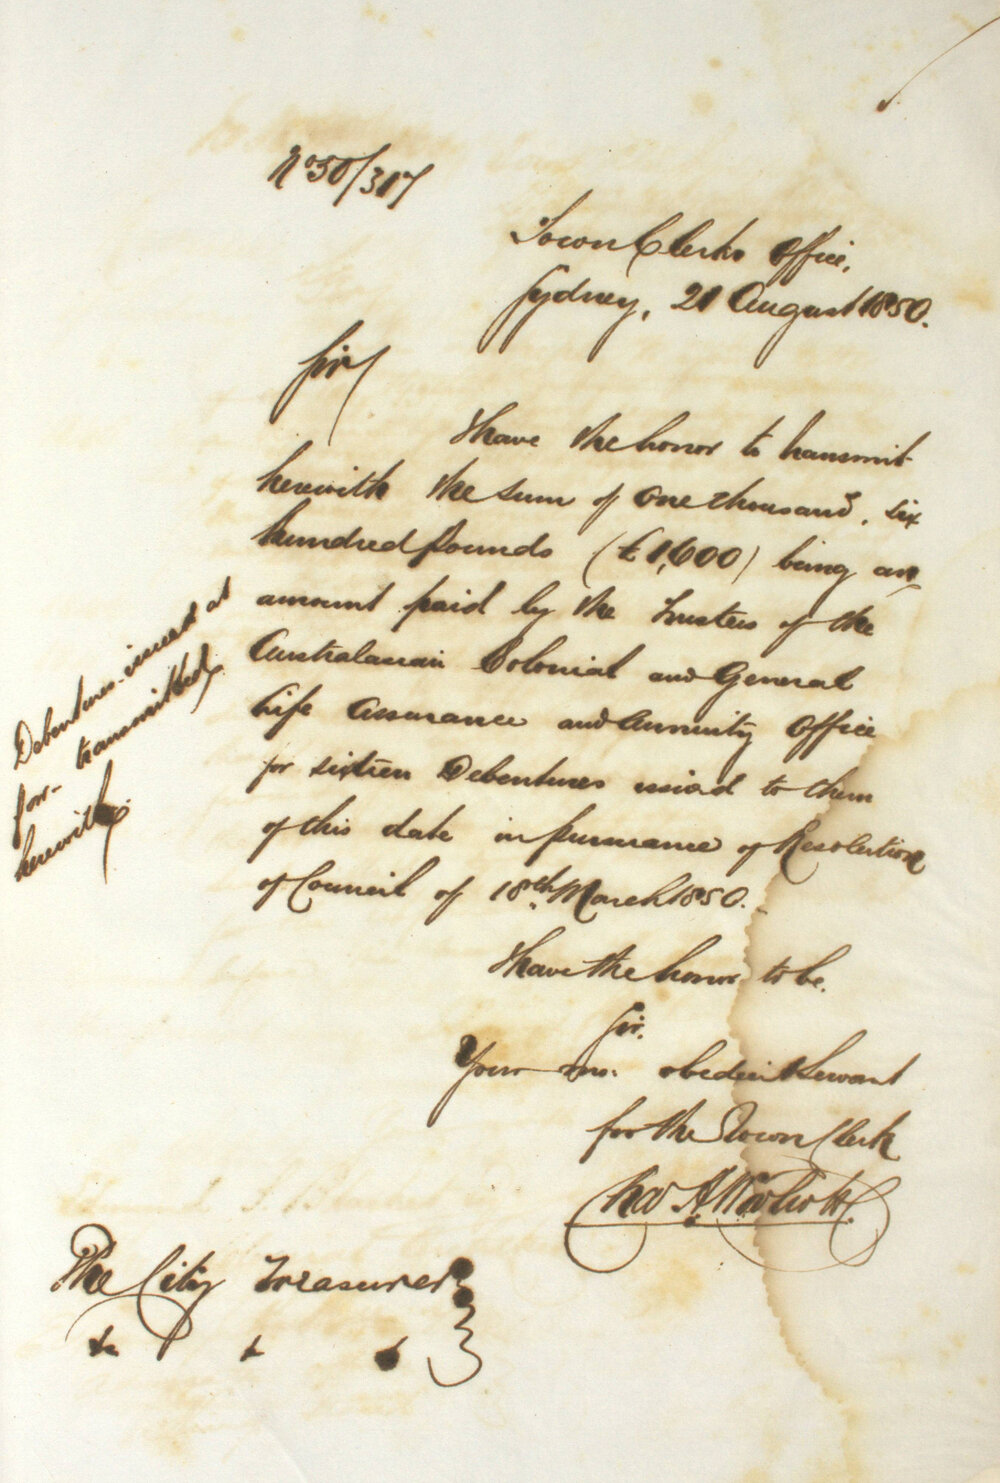 No 50/317
Town Clerks Office,
Sydney, 21 August 1850.
Sir/
I have the honor to transmit
herewith the sum of One thousand, six
hundred Pounds (£1,600) being an
amount paid by the Trustees of the
Australasian Colonial and General
Life Assurance and Annuity Office
for sixteen Debentures issued to them
of this date in pursuance of Resolution
of Council of 18th March 1850.
I have the honor to be.
Sir.
Your mo. obedient Servant
for the Town Clerk
Chas H. Woolcott
Debentures issued at
for transmitted
herewith
The City Treasurer
&c & &